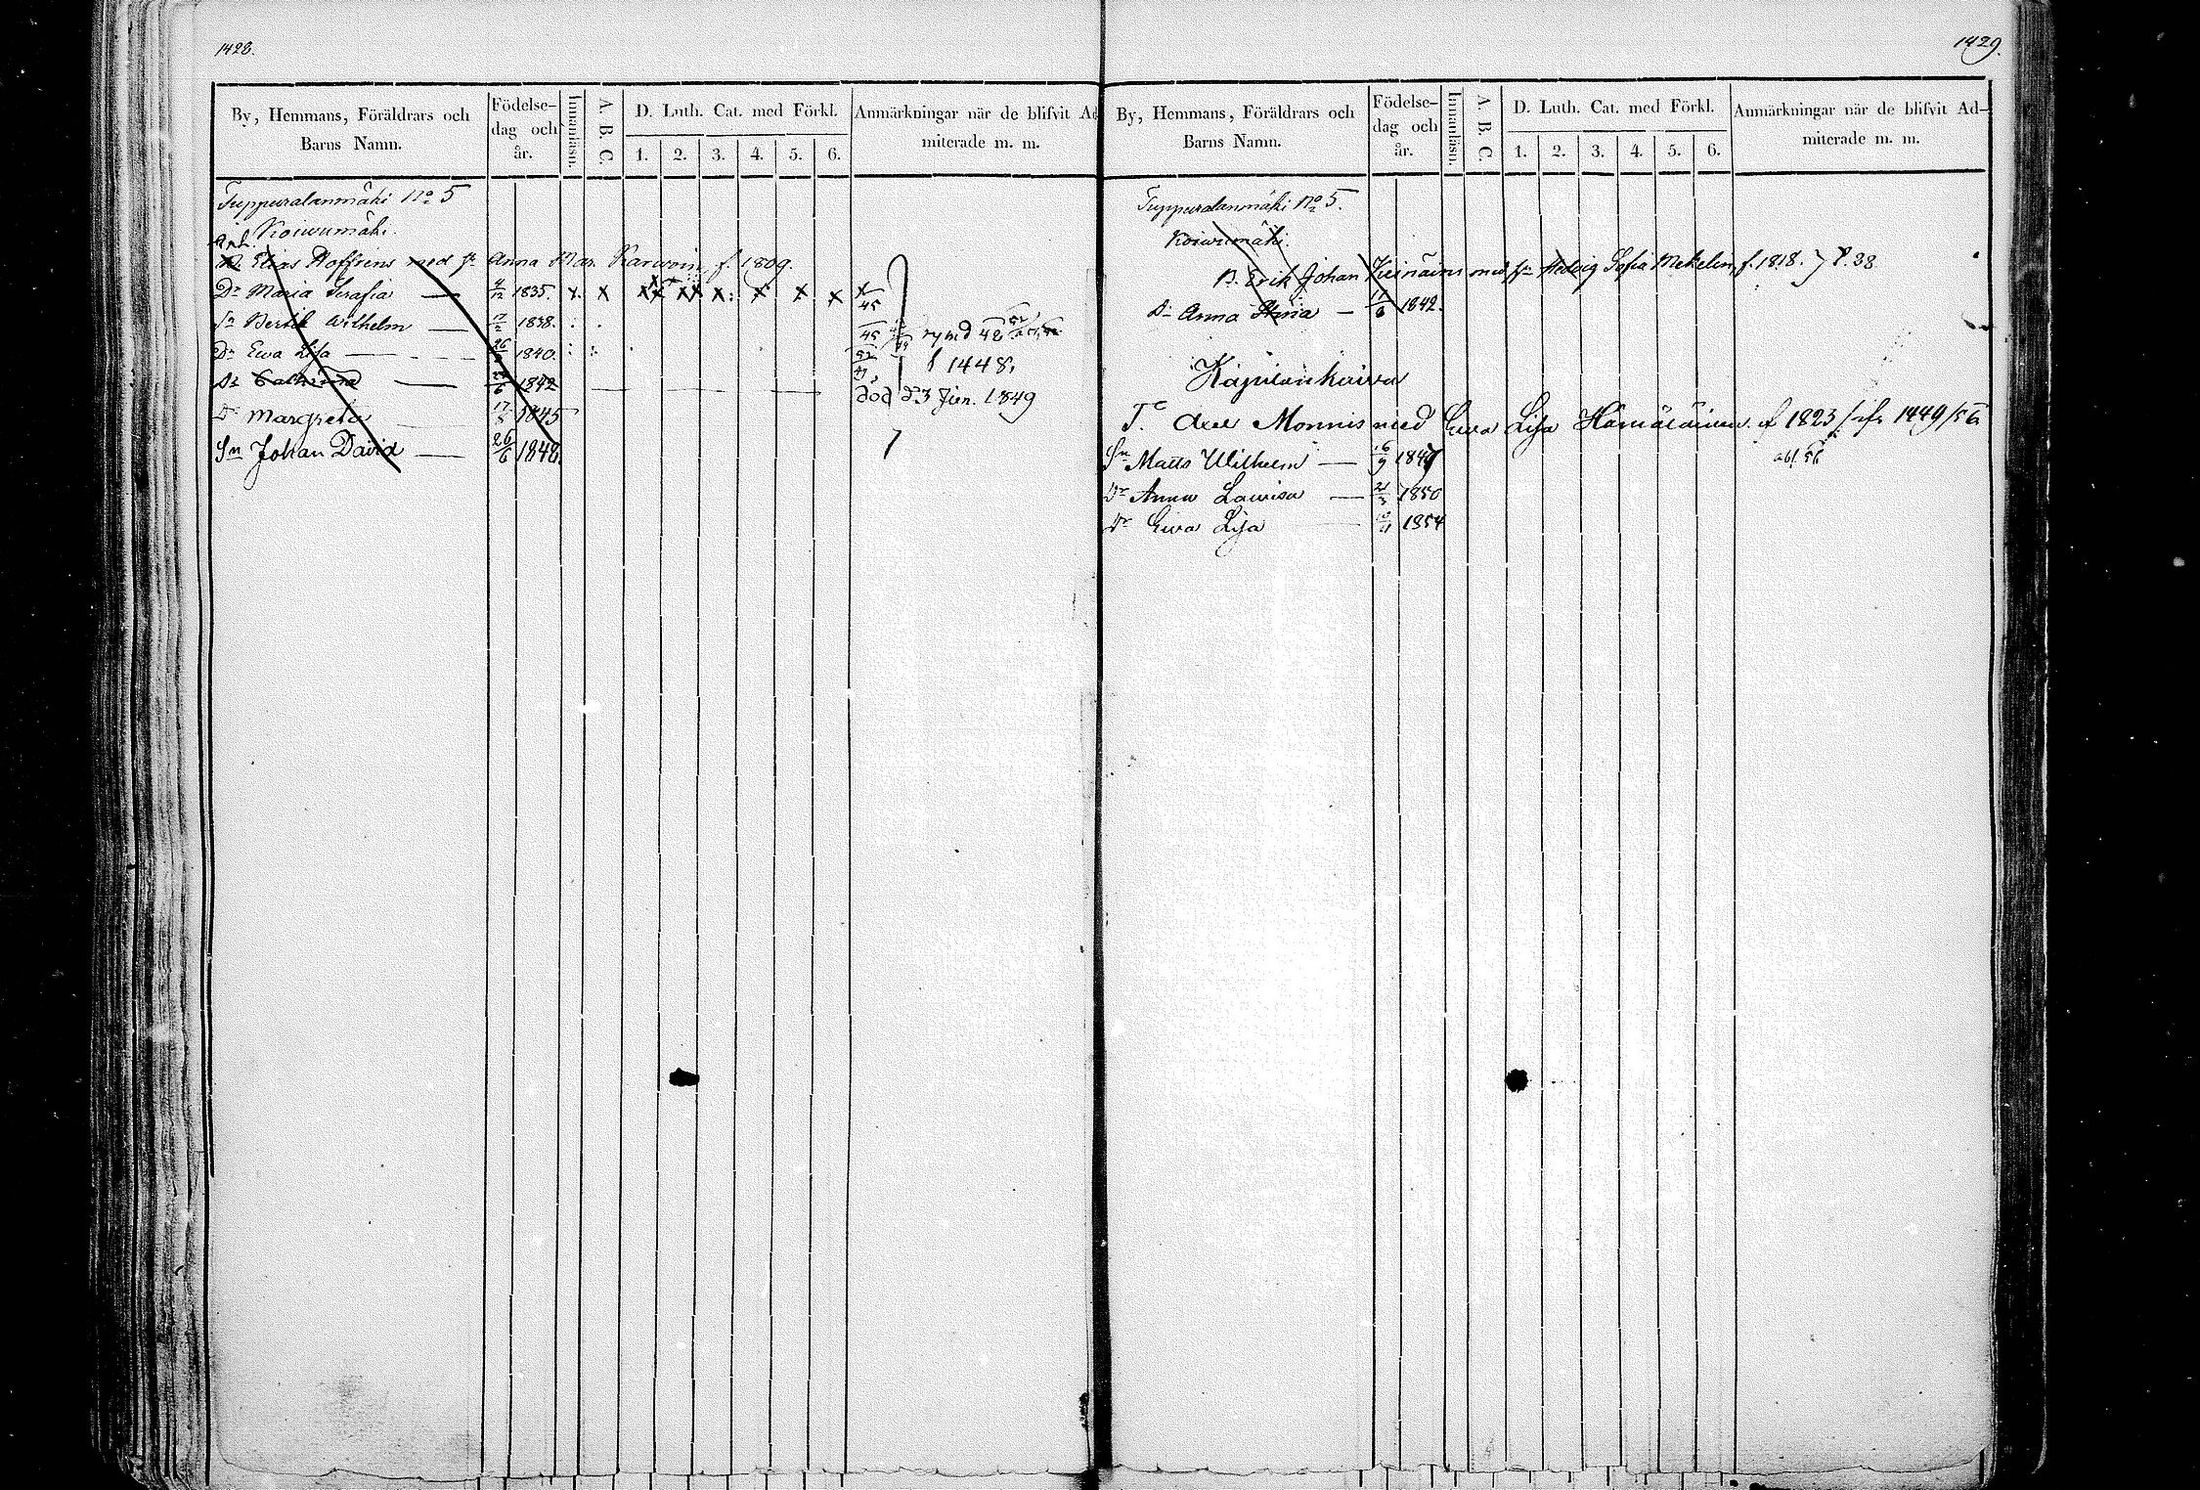 1428.
By, Hemmans, Föräldrars och Barns Namn.
Födelse-dag och år.
Innanläsn.
A. B. C.
D. Luth. Cat. med Förkl.
1. 2. 3. 4. 5. 6.
Anmärkningar när de blifvit Admiterade m. m.
Tuppuralanmäki No 5
Koiwumäki.
Elias Hoffrens med hu Anna Mar. Karwoin. f. 1809.
Dr Maria Serafia — 4/12 1835. x. x x x x x x x x
45
Sn Bertil Wilhelm — 17/2 1838. 45 rymd 48
Dr Ewa Lisa — 26 1840. f 1448.
Dr Catharina — 6 1842 — död d. 3 Jun. 1849
Dr Margreta 17 1845
Sn Johan David — 26/6 1848.
1429.
By, Hemmans, Föräldrars och Barns Namn.
Födelse-dag och år.
Innanläsn.
A. B. C.
D. Luth. Cat. med Förkl.
1. 2. 3. 4. 5. 6.
Anmärkningar när de blifvit Admiterade m. m.
Tuppuralanmäki No 5.
Koiwumäki.
B. Erik Johan med hu Hedvig Sofia Mekelin, f. 1818. P. 38
Dr Anna — 11/6 1842.
T. Axel Monnis med Ewa Lisa Hämäläinen. f 1823 1449/56
Sn Matts Wilhelm — 16/9 1847
abf. 56
Dr Anna Lawisa — 21/3 1850
Dr Ewa Lisa 10/11 1854